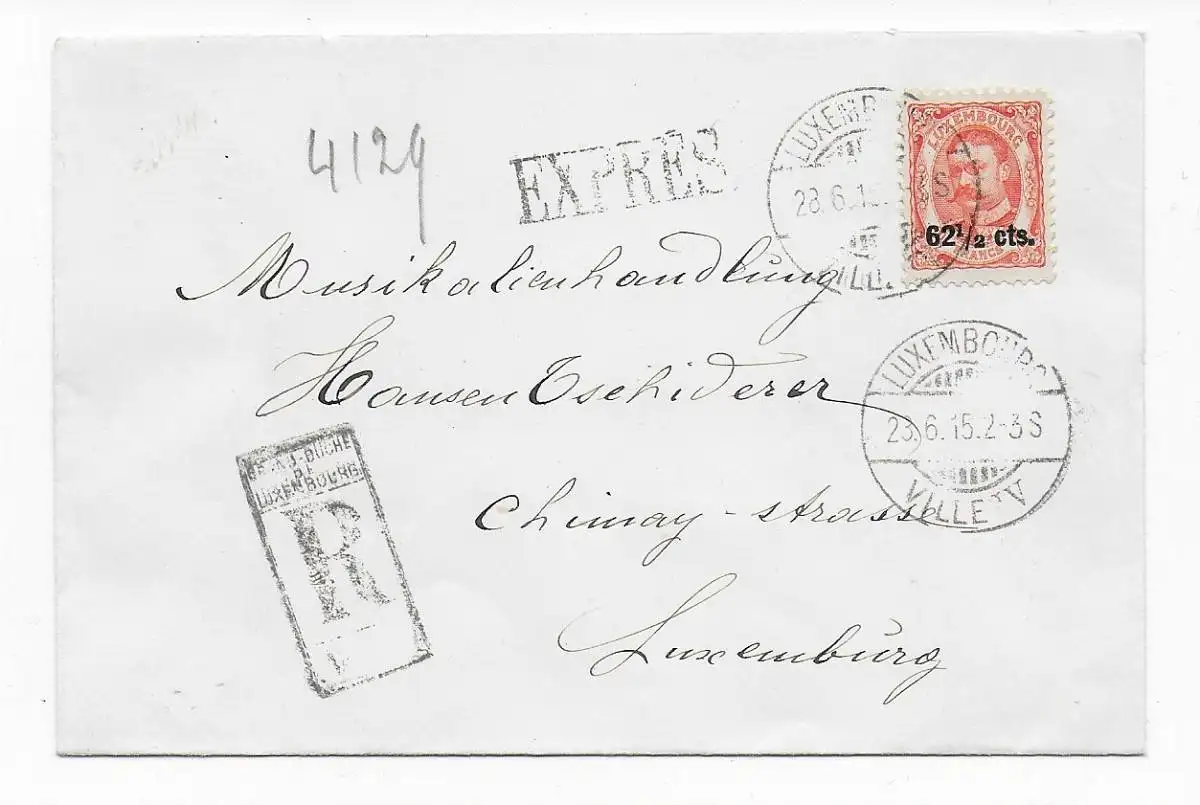 4129
EXPRÈS
LUXEMB
28.6.15. S
VILL
LUXEMBOURG
62½ cts.
FRANCS
Musikalienhandlung
Hansen Tschiderer
LUXEMBOURG
28.6.15.2-3S
VILLE V
GRAND-DUCHÉ
DE
LUXEMBOURG
R
V
Chimay-strasse
Luxemburg